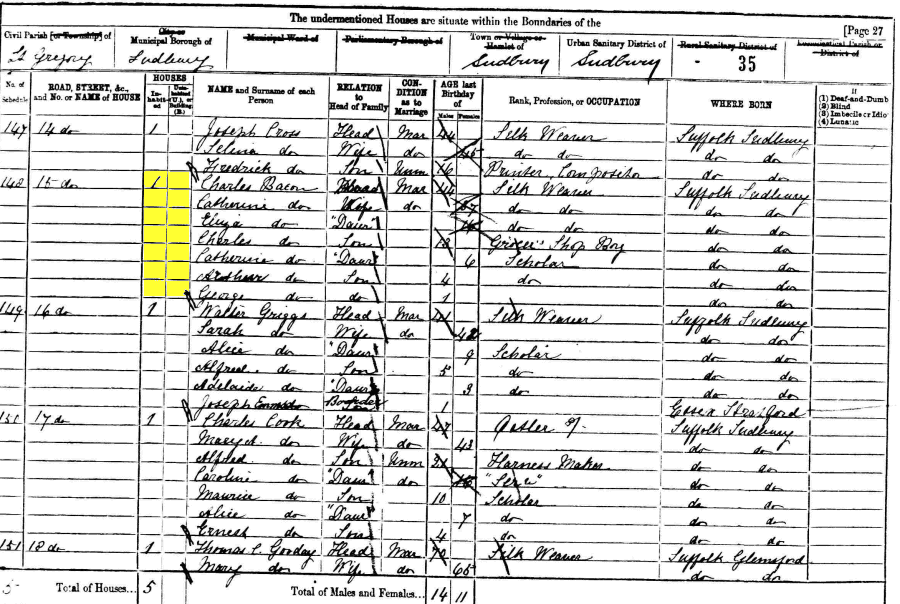 The undermentioned Houses are situate within the Boundaries of the
[Page 27
Civil Parish [or Township] of
City or Municipal Borough of
Municipal Ward of
Parliamentary Borough of
Town or Village or Hamlet of
Urban Sanitary District of
Rural Sanitary District of
Ecclesiastical Parish or District of
St Gregory Sudbury Sudbury Sudbury - 35
No. of Schedule
ROAD, STREET, &c., and No. or NAME of HOUSE
HOUSES
In-habit-ed
Unin-habited (U.), or Building (B.)
NAME and Surname of each Person
RELATION to Head of Family
CON-DITION as to Marriage
AGE last Birthday of
Males Females
Rank, Profession, or OCCUPATION
WHERE BORN
If
(1) Deaf-and-Dumb
(2) Blind
(3) Imbecile or Idio
(4) Lunatic
147 14 do 1 Joseph Cross Head Mar 44 Silk Weaver Suffolk Sudbury
Selina do Wife do 45 do do do do
Fredrick do Son Unm 16 Printer Compositor do do
148 15 do 1 Charles Bacon Head Mar 44 Silk Weaver Suffolk Sudbury
Catherine do Wife do do do do do
Eliza do "Daur" do do do do
Charles do Son 13 Grocers Shop Boy do do
Catherine do "Daur" 6 Scholar do do
Arthur do Son 4 do do do
George do do 1 do do
149 16 do 1 Walter Griggs Head Mar 41 Silk Weaver Suffolk Sudbury
Sarah do Wife do 42 do do
Alice do "Daur" 9 Scholar do do
Alfred do Son 5 do do do
Adelaide do "Daur" 3 do do do
Joseph Boarder 1 Essex Stratford
151 17 do 1 Charles Cook Head Mar 47 Ostler Suffolk Sudbury
Mary A. do Wife do 43 do do
Alfred do Son Unm 21 Harness Maker do do
Caroline do "Daur" do "Serv" do do
Maurice do Son 10 Scholar do do
Alice do "Daur" 7 do do do
Ernest do Son 4 do do do
151 18 do 1 Thomas C. Gooday Head Mar 70 Silk Weaver Suffolk Glemsford
Mary do Wife 65 do do
5 Total of Houses... 5 Total of Males and Females... 14 11